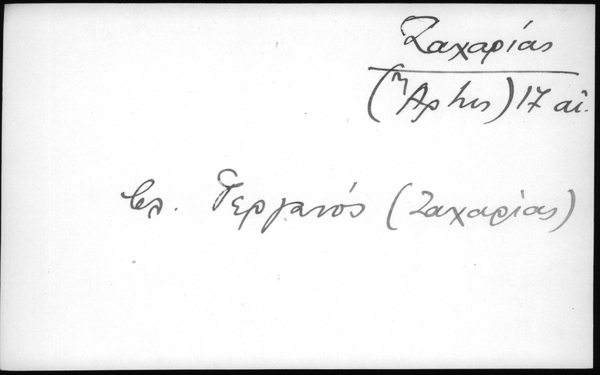 Ζαχαρίας
(Ἄρτης) 17 αἰ.
βλ. Γεργανός (Ζαχαρίας)